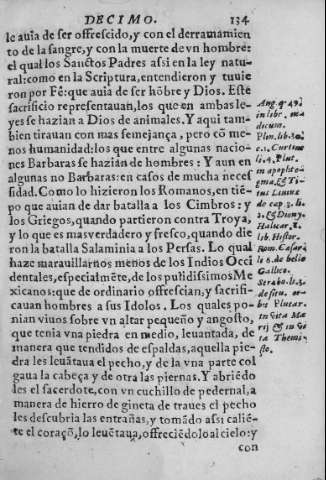 DECIMO. 134
le auia de ser offrescido, y con el derramamien
to de la sangre, y con la muerte de vn hombre:
el qual los Sanctos Padres assi en la ley natu-
ral: como en la Scriptura, entendieron y tuuie
ron por Fé: que auia de ser hõbre y Dios. Este
sacrificio representauan, los que en ambas le-
yes se hazian a Dios de animales. Y aqui tam-
bien tirauan con mas semejança, pero cõ me-
nos humanidad: los que entre algunas nacio-
nes Barbaras se hazian de hombres: Y aun en
algunas no Barbaras: en casos de mucha neces
sidad. Como lo hizieron los Romanos, en tiẽ-
po que auian de dar batalla a los Cimbros: y
los Griegos, quando partieron contra Troya,
y lo que es mas verdadero y fresco, quando die
ron la batalla Salaminia a los Persas. Lo qual
haze marauillarnos menos de los Indios Occi
dentales, especialmẽte, de los pulidissimos Me
xicanos: que de ordinario offrescian, y sacrifi-
cauan hombres a sus Idolos. Los quales po-
nian viuos sobre vn altar pequeño y angosto,
que tenia vna piedra en medio, leuantada, de
manera que tendidos de espaldas, aquella pie-
dra les leuãtaua el pecho, y de la vna parte col
gaua la cabeça y de otra las piernas. Y abriẽdo
les el sacerdote, con vn cuchillo de pedernal, a
manera de hierro de gineta de traues el pecho
les descubria las entrañas, y tomãdo assi caliẽ-
te el coraçõ, lo leuẽtaua, offreciẽdolo al cielo: y
con
Ang. q. 49.
in libr. me
dicum.
Plin. lib. 30.
c. 1. Curtius
li. 4. Plut.
in apophto
gma, & Ti-
tus Liuius
de cap. 2. li.
2. & Diony.
Halicar. 1.
lib. Histor.
Rom. Cæsar
li 6. de bello
Gallico.
Strabo. li. 3.
de situ. or-
bis Plutar.
in vita Ma
rij & in vi
ta Themi-
sto.